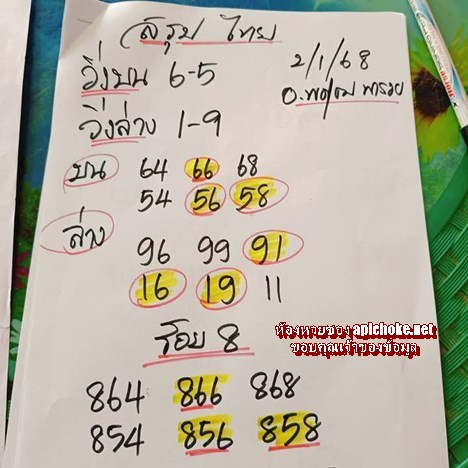 สรุป ไทย
วิ่งบน 6-5
2/1/68
วิ่งล่าง 1-9
บน 64 66 68
54 56 58
ล่าง
96 99 91
16 19 11
ห้องหวยซอง apichoke.net
ขอบคุณเจ้าของข้อมูล
ร้อย 8
864 866 868
854 856 858